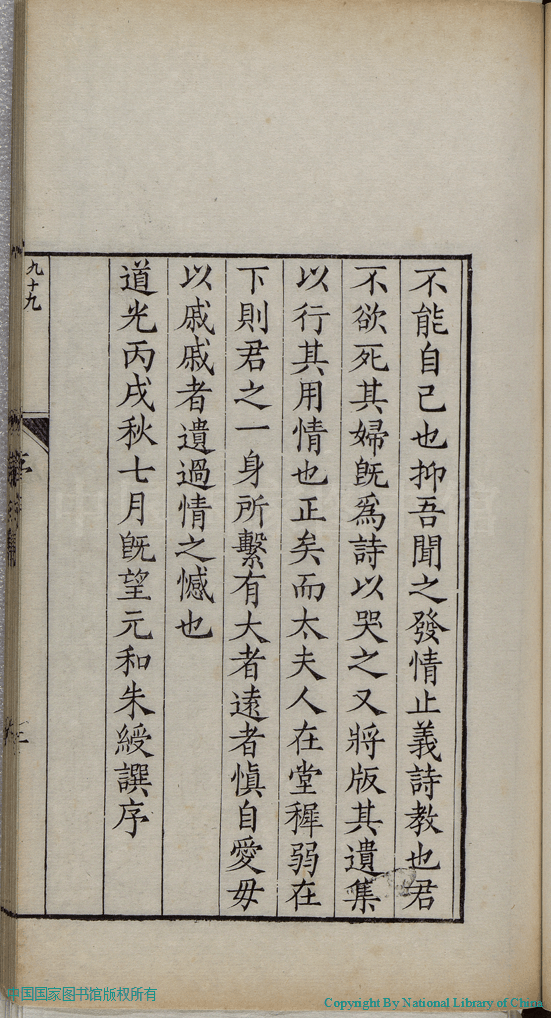 不能自己也抑吾聞之發情止義詩教也君
不欲死其婦旣爲詩以哭之又將版其遺集
以行其用情也正矣而太夫人在堂穉弱在
下則君之一身所繫有大者遠者愼自愛毋
以戚戚者遺過情之憾也
道光丙戌秋七月旣望元和朱綬譔序
九十九
中国国家图书馆版权所有
Copyright By National Library of China